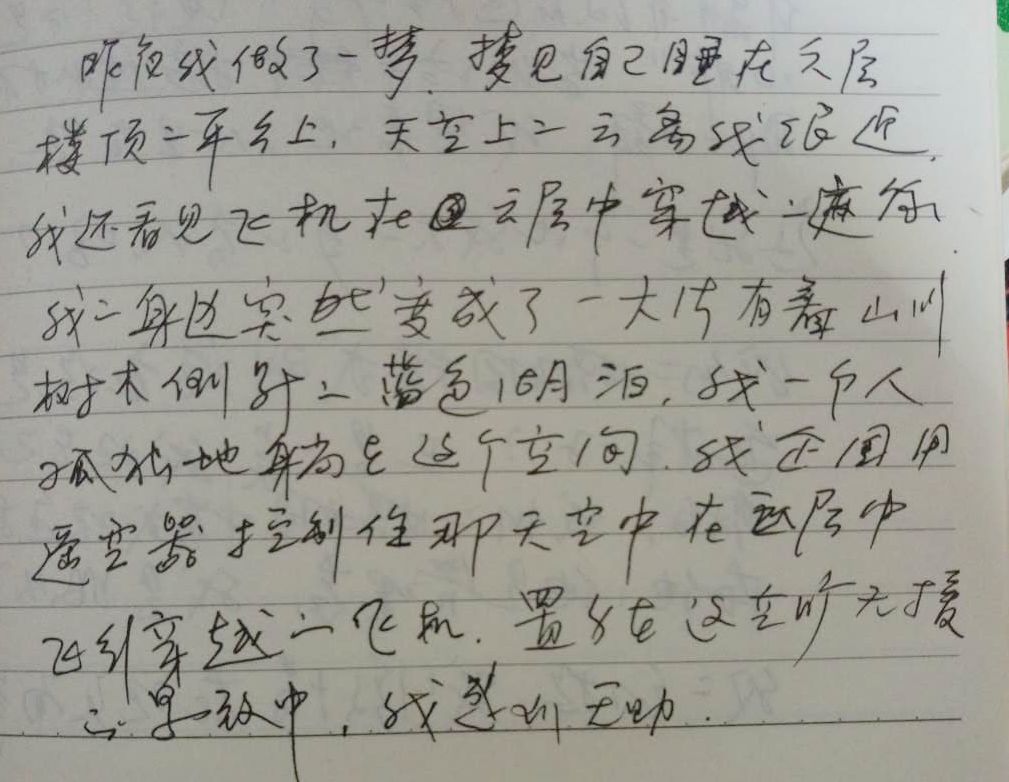 昨夜我做了一梦.梦见自己睡在天层
楼顶二平台上,天空上二云离我很近.
我还看见飞机在云层中穿越二痕条.
我二身边突然变成了一大片有着山川
树木倒影二蓝色湖泊,我一个人
孤独地躺在这个空间.我还国用
遥空器控制住那天空中在云层中
飞行穿越二飞机.置身在这空旷无援
二景致中,我感到无助.